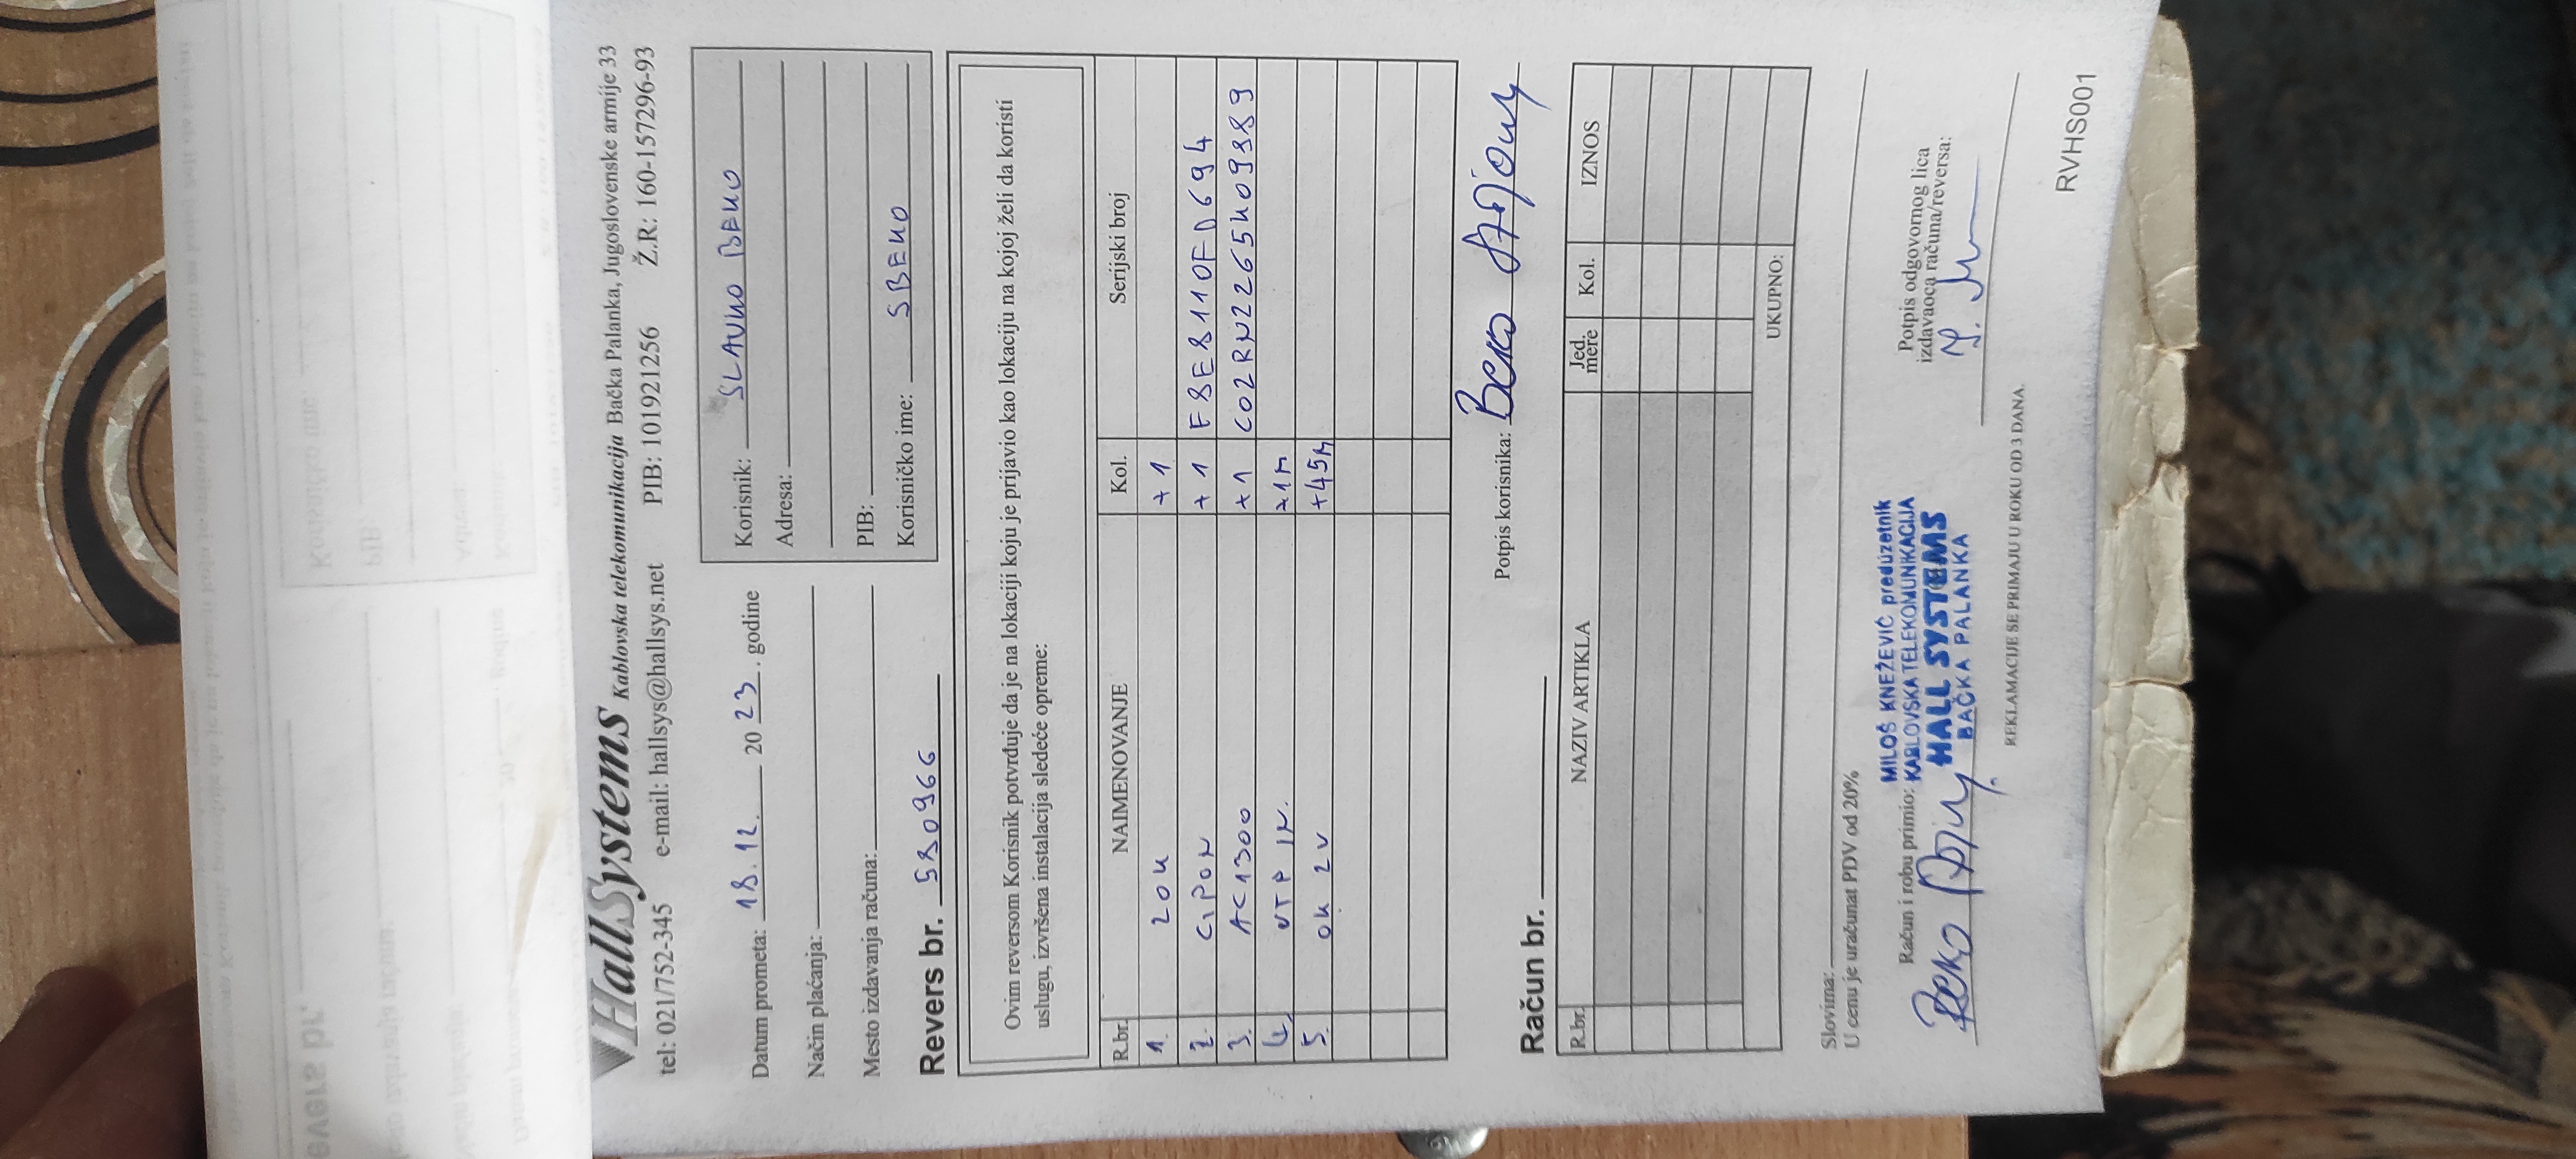 HallSystems Kablovska telekomunikacija Bačka Palanka, Jugoslovenske armije 33
tel: 021/752-345 e-mail: hallsys@hallsys.net PIB: 101921256 Ž.R: 160-157296-93
Datum prometa: 18.12. 20 23 . godine
Način plaćanja:
Mesto izdavanja računa:
Korisnik: SLAVKO BEKO
Adresa:
PIB:
Korisničko ime: SBEKO
Revers br. 580966
Ovim reversom Korisnik potvrđuje da je na lokaciji koju je prijavio kao lokaciju na kojoj želi da koristi
uslugu, izvršena instalacija sledeće opreme:
R.br. NAIMENOVANJE Kol. Serijski broj
1. ZOK +1
2. GPON +1 F8E8110FD694
3. AC1300 +1 C02RN2265K09889
4. UTP IN. +1M
5. OK 2V +45M
Potpis korisnika: Beko
Račun br.
R.br. NAZIV ARTIKLA Jed. mere Kol. IZNOS
UKUPNO:
Slovima:
U cenu je uračunat PDV od 20%
Račun i robu primio:
MILOŠ KNEŽEVIĆ preduzetnik
KABLOVSKA TELEKOMUNIKACIJA
HALL SYSTEMS
BAČKA PALANKA
Potpis odgovornog lica
izdavaoca računa/reversa:
REKLAMACIJE SE PRIMAJU U ROKU OD 3 DANA.
RVHS001